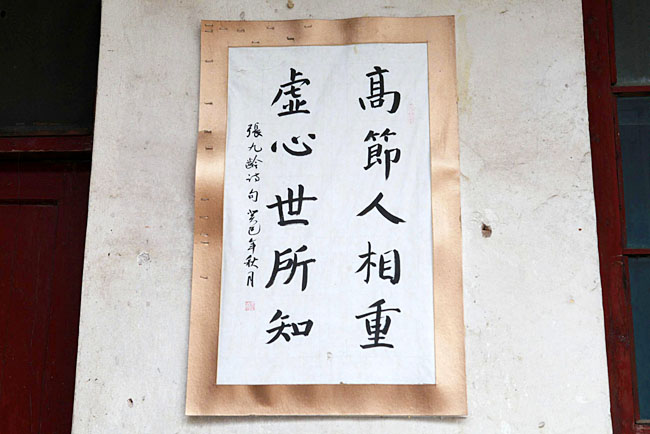 高節人相重
虛心世所知
張九龄诗句 癸巳年秋月